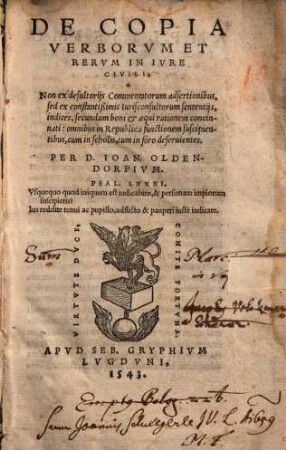 DE COPIA
VERBORVM ET
RERVM IN IVRE
CIVILI,
Non ex desultorijs Commentatorum adsertionibus,
sed ex constantißimis iurisconsultorum sententijs,
indices, secundum boni & æqui rationem concin-
nati: omnibus in Republica functionem suscipien-
tibus, cum in scholis, tum in foro deseruientes.
PER D. IOAN. OLDEN-
DORPIVM.
PSAL. LXXXI.
Vsquequo quod iniquum est iudicabitis, & personam impiorum
suscipietis?
Ius reddite tenui ac pupillo, adflicto & pauperi iustè indicate.
Sum
VIRTVTE DVCE,
COMITE FORTVNA.
APVD SEB. GRYPHIVM
LVGDVNI,
1543.
Sum Joannis